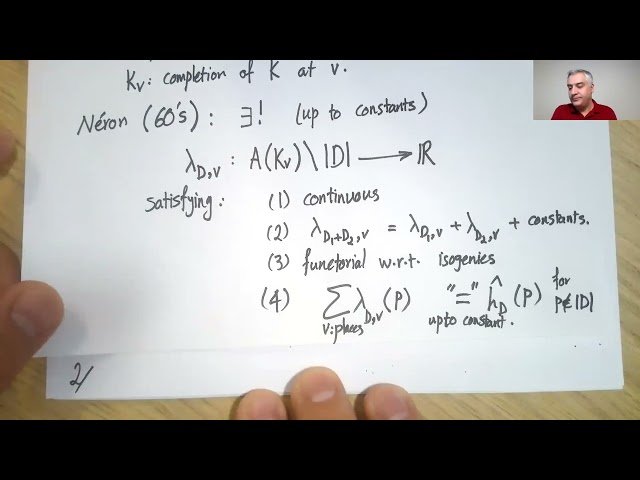 Kv: completion of K at v.
Néron (60's): ∃! (up to constants)
λ_{D,v} : A(Kv) \ |D| ⟶ ℝ
satisfying: (1) continuous
(2) λ_{D₁+D₂,v} = λ_{D₁,v} + λ_{D₂,v} + constants.
(3) functorial w.r.t. isogenies
(4) ∑_{v:places} λ_{D,v}(P) "=" ĥ_D(P) for P∉|D|
up to constant.
2/